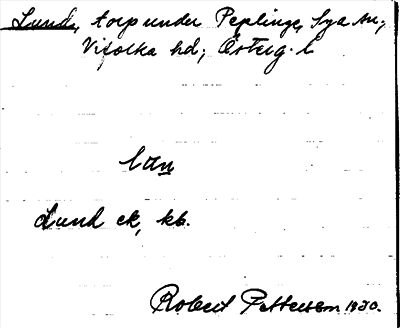 Lund, torp under Peplinge, Sya sn,
Vifolka hd, Österg. l
lun
Lund ek, kb.
Robert Pettersson 1930.